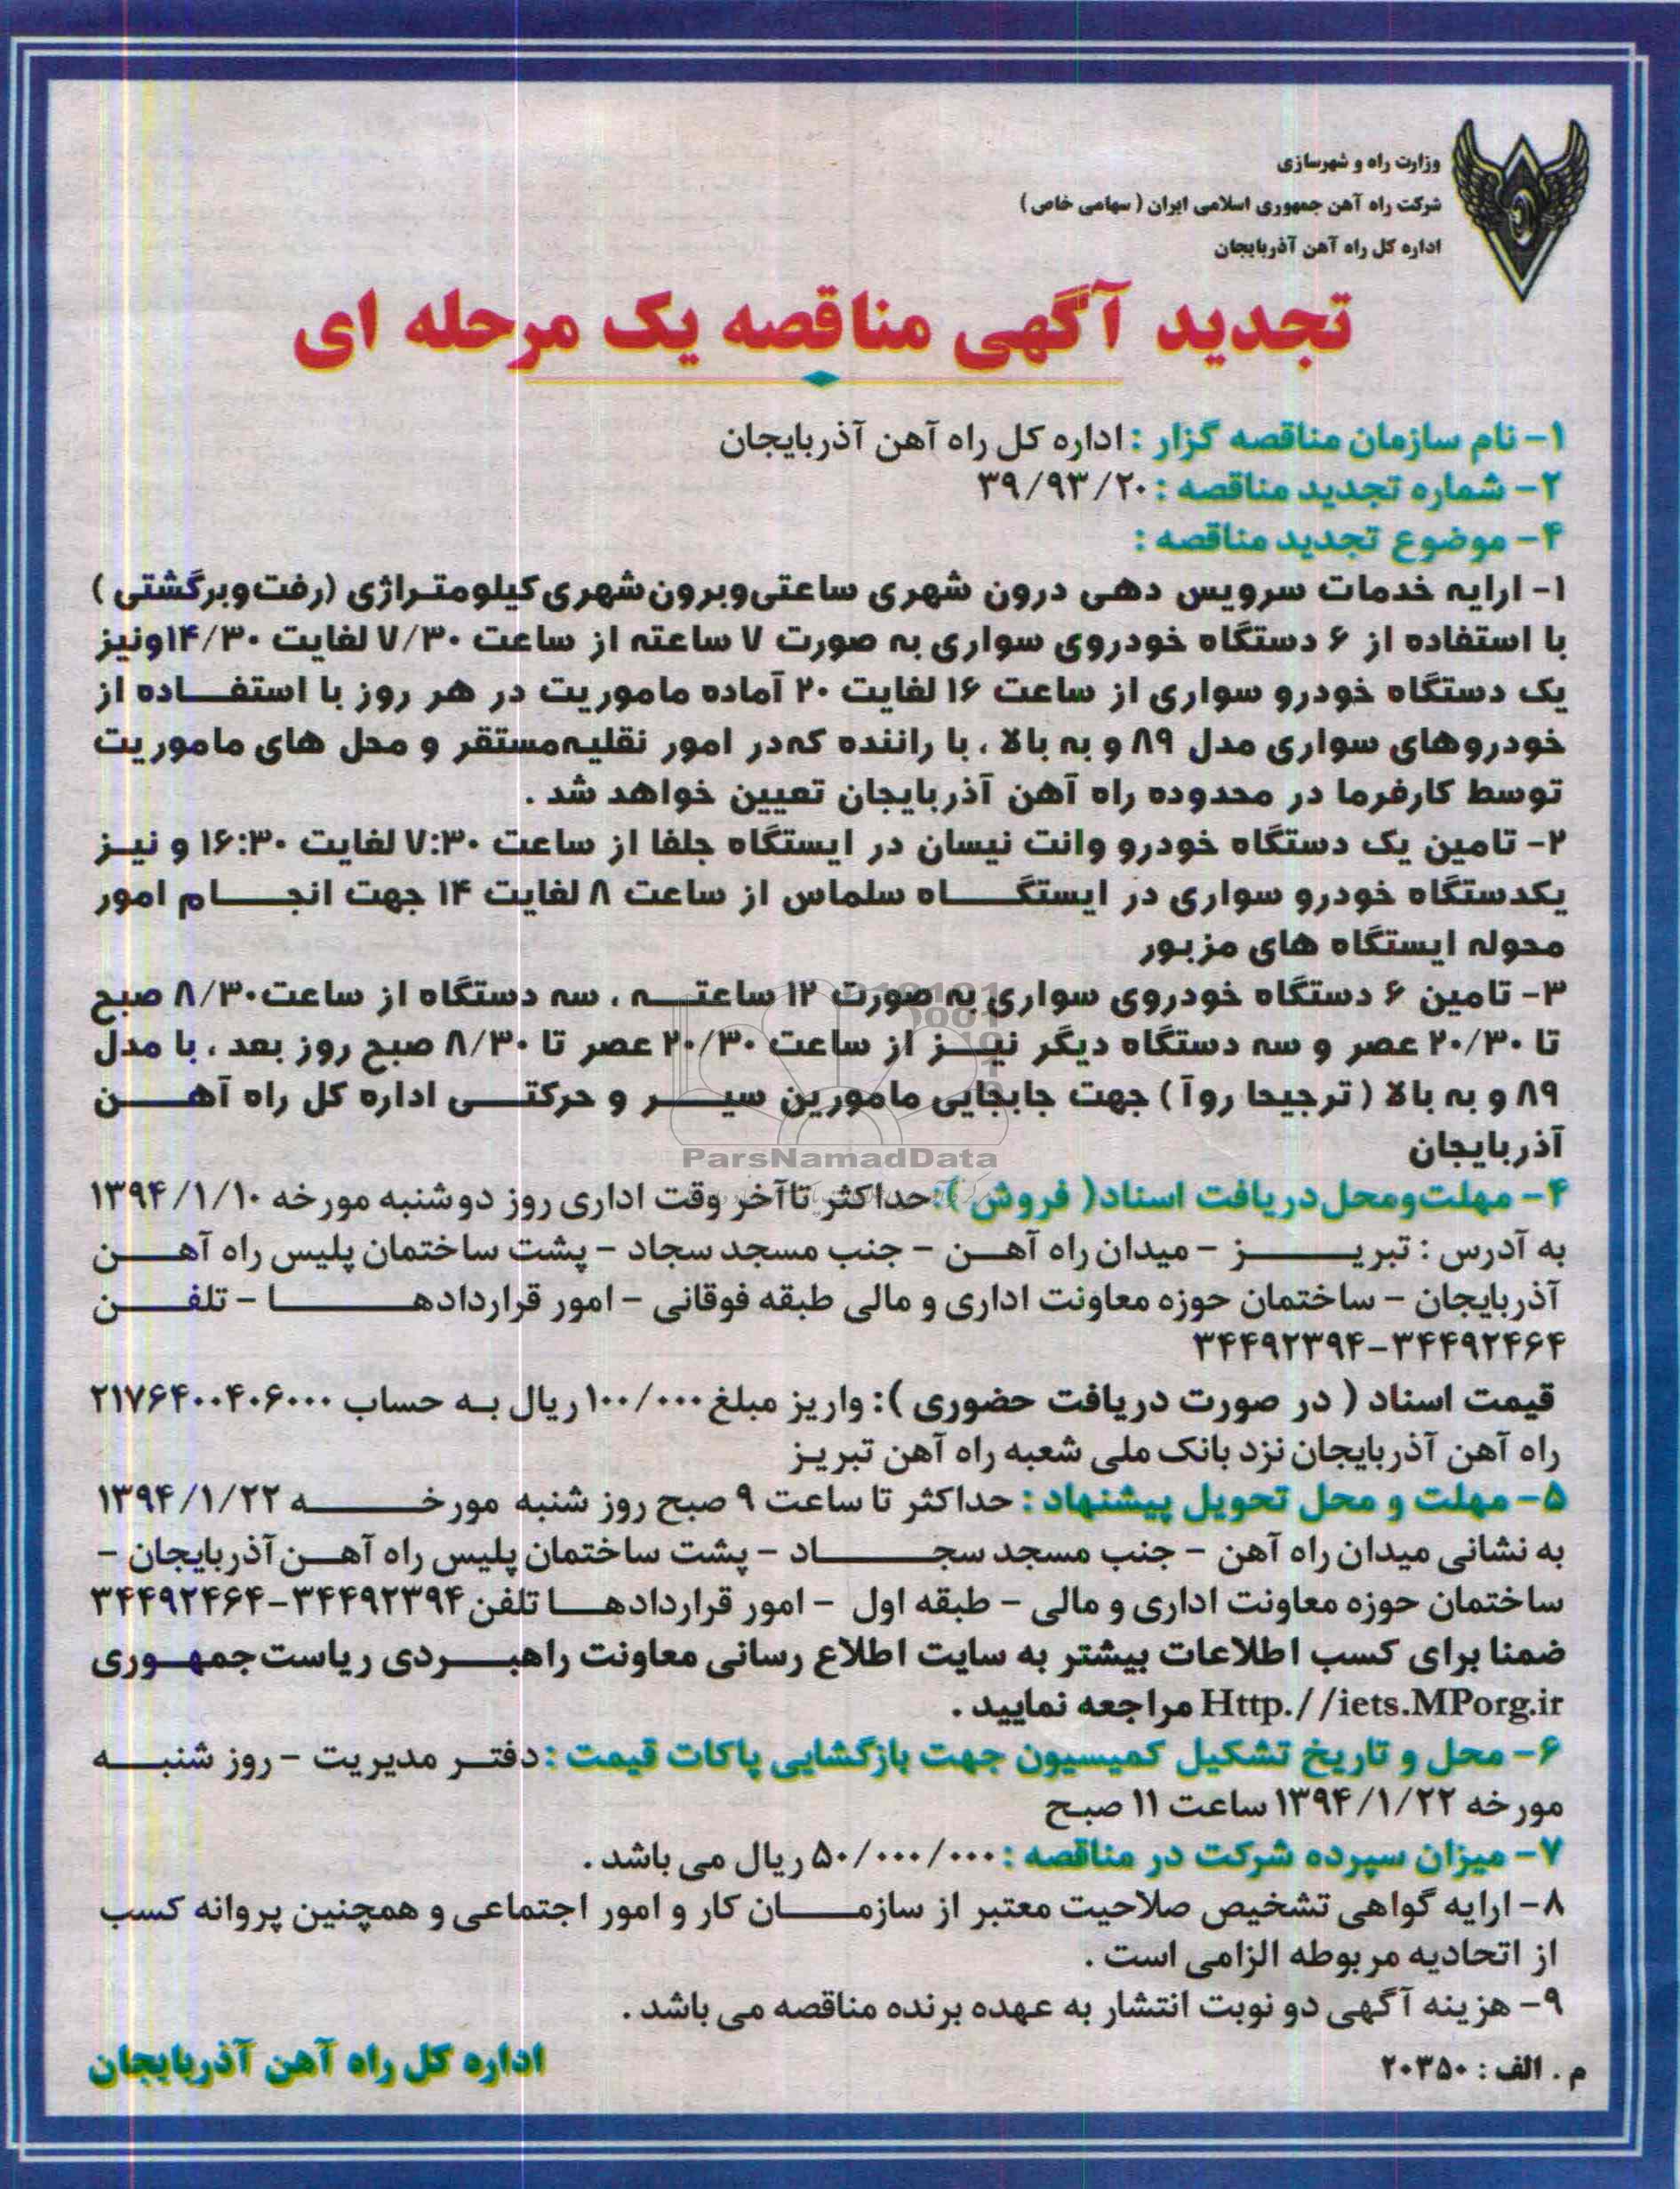 وزارت راه و شهرسازی
شرکت راه آهن جمهوری اسلامی ایران ( سهامی خاص )
اداره کل راه آهن آذربایجان
تجدید آگهی مناقصه یک مرحله ای
۱- نام سازمان مناقصه گزار : اداره کل راه آهن آذربایجان
۲- شماره تجدید مناقصه : ۳۹/۹۳/۲۰
۴- موضوع تجدید مناقصه :
۱- ارایه خدمات سرویس دهی درون شهری ساعتی وبرون شهری کیلومتراژی (رفت وبرگشتی )
با استفاده از ۶ دستگاه خودروی سواری به صورت ۷ ساعته از ساعت ۷/۳۰ لغایت ۱۴/۳۰ونیز
یک دستگاه خودرو سواری از ساعت ۱۶ لغایت ۲۰ آماده ماموریت در هر روز با استفاده از
خودروهای سواری مدل ۸۹ و به بالا ، با راننده که در امور نقلیه مستقر و محل های ماموریت
توسط کارفرما در محدوده راه آهن آذربایجان تعیین خواهد شد .
۲- تامین یک دستگاه خودرو وانت نیسان در ایستگاه جلفا از ساعت ۷:۳۰ لغایت ۱۶:۳۰ و نیز
یکدستگاه خودرو سواری در ایستگاه سلماس از ساعت ۸ لغایت ۱۴ جهت انجام امور
محوله ایستگاه های مزبور
۳- تامین ۶ دستگاه خودروی سواری به صورت ۱۲ ساعته ، سه دستگاه از ساعت۸/۳۰ صبح
تا ۲۰/۳۰ عصر و سه دستگاه دیگر نیز از ساعت ۲۰/۳۰ عصر تا ۸/۳۰ صبح روز بعد ، با مدل
۸۹ و به بالا ( ترجیحا روآ ) جهت جابجایی مامورین سیر و حرکتی اداره کل راه آهن
آذربایجان
ParsNamadData
۴- مهلت ومحل دریافت اسناد( فروش ):حداکثر تاآخر وقت اداری روز دوشنبه مورخه ۱۳۹۴/۱/۱۰
به آدرس : تبریز - میدان راه آهن - جنب مسجد سجاد - پشت ساختمان پلیس راه آهن
آذربایجان - ساختمان حوزه معاونت اداری و مالی طبقه فوقانی - امور قراردادها - تلفن
۳۴۴۹۲۳۹۴-۳۴۴۹۲۴۶۴
قیمت اسناد ( در صورت دریافت حضوری ): واریز مبلغ ۱۰۰/۰۰۰ ریال به حساب ۲۱۷۶۴۰۰۴۰۶۰۰۰
راه آهن آذربایجان نزد بانک ملی شعبه راه آهن تبریز
۵- مهلت و محل تحویل پیشنهاد : حداکثر تا ساعت ۹ صبح روز شنبه مورخه ۱۳۹۴/۱/۲۲
به نشانی میدان راه آهن - جنب مسجد سجاد - پشت ساختمان پلیس راه آهن آذربایجان -
ساختمان حوزه معاونت اداری و مالی - طبقه اول - امور قراردادها تلفن ۳۴۴۹۲۳۹۴-۳۴۴۹۲۴۶۴
ضمنا برای کسب اطلاعات بیشتر به سایت اطلاع رسانی معاونت راهبردی ریاست جمهوری
Http.//iets.MPorg.ir مراجعه نمایید .
۶- محل و تاریخ تشکیل کمیسیون جهت بازگشایی پاکات قیمت : دفتر مدیریت - روز شنبه
مورخه ۱۳۹۴/۱/۲۲ ساعت ۱۱ صبح
۷- میزان سپرده شرکت در مناقصه : ۵۰/۰۰۰/۰۰۰ ریال می باشد .
۸- ارایه گواهی تشخیص صلاحیت معتبر از سازمان کار و امور اجتماعی و همچنین پروانه کسب
از اتحادیه مربوطه الزامی است .
۹- هزینه آگهی دو نوبت انتشار به عهده برنده مناقصه می باشد .
م . الف : ۲۰۳۵۰
اداره کل راه آهن آذربایجان